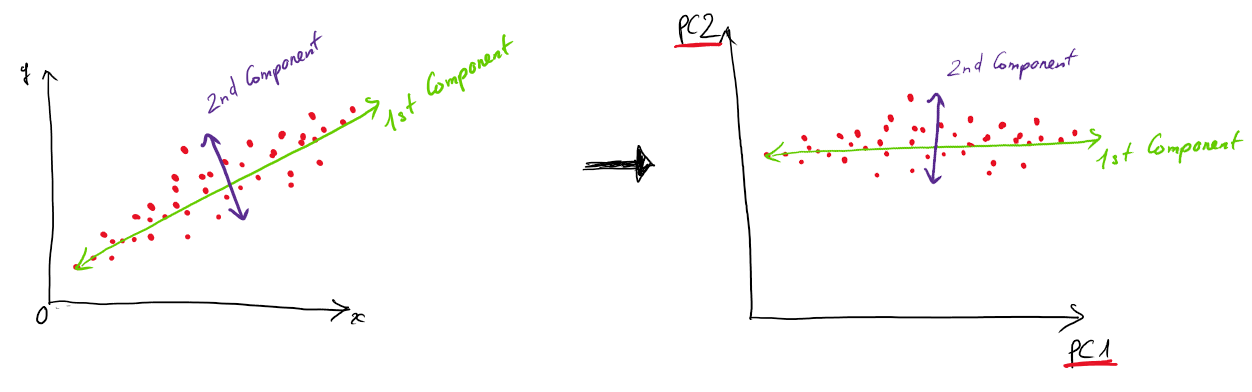 y
2nd Component
1st Component
0
x
PC2
2nd Component
1st Component
PC1